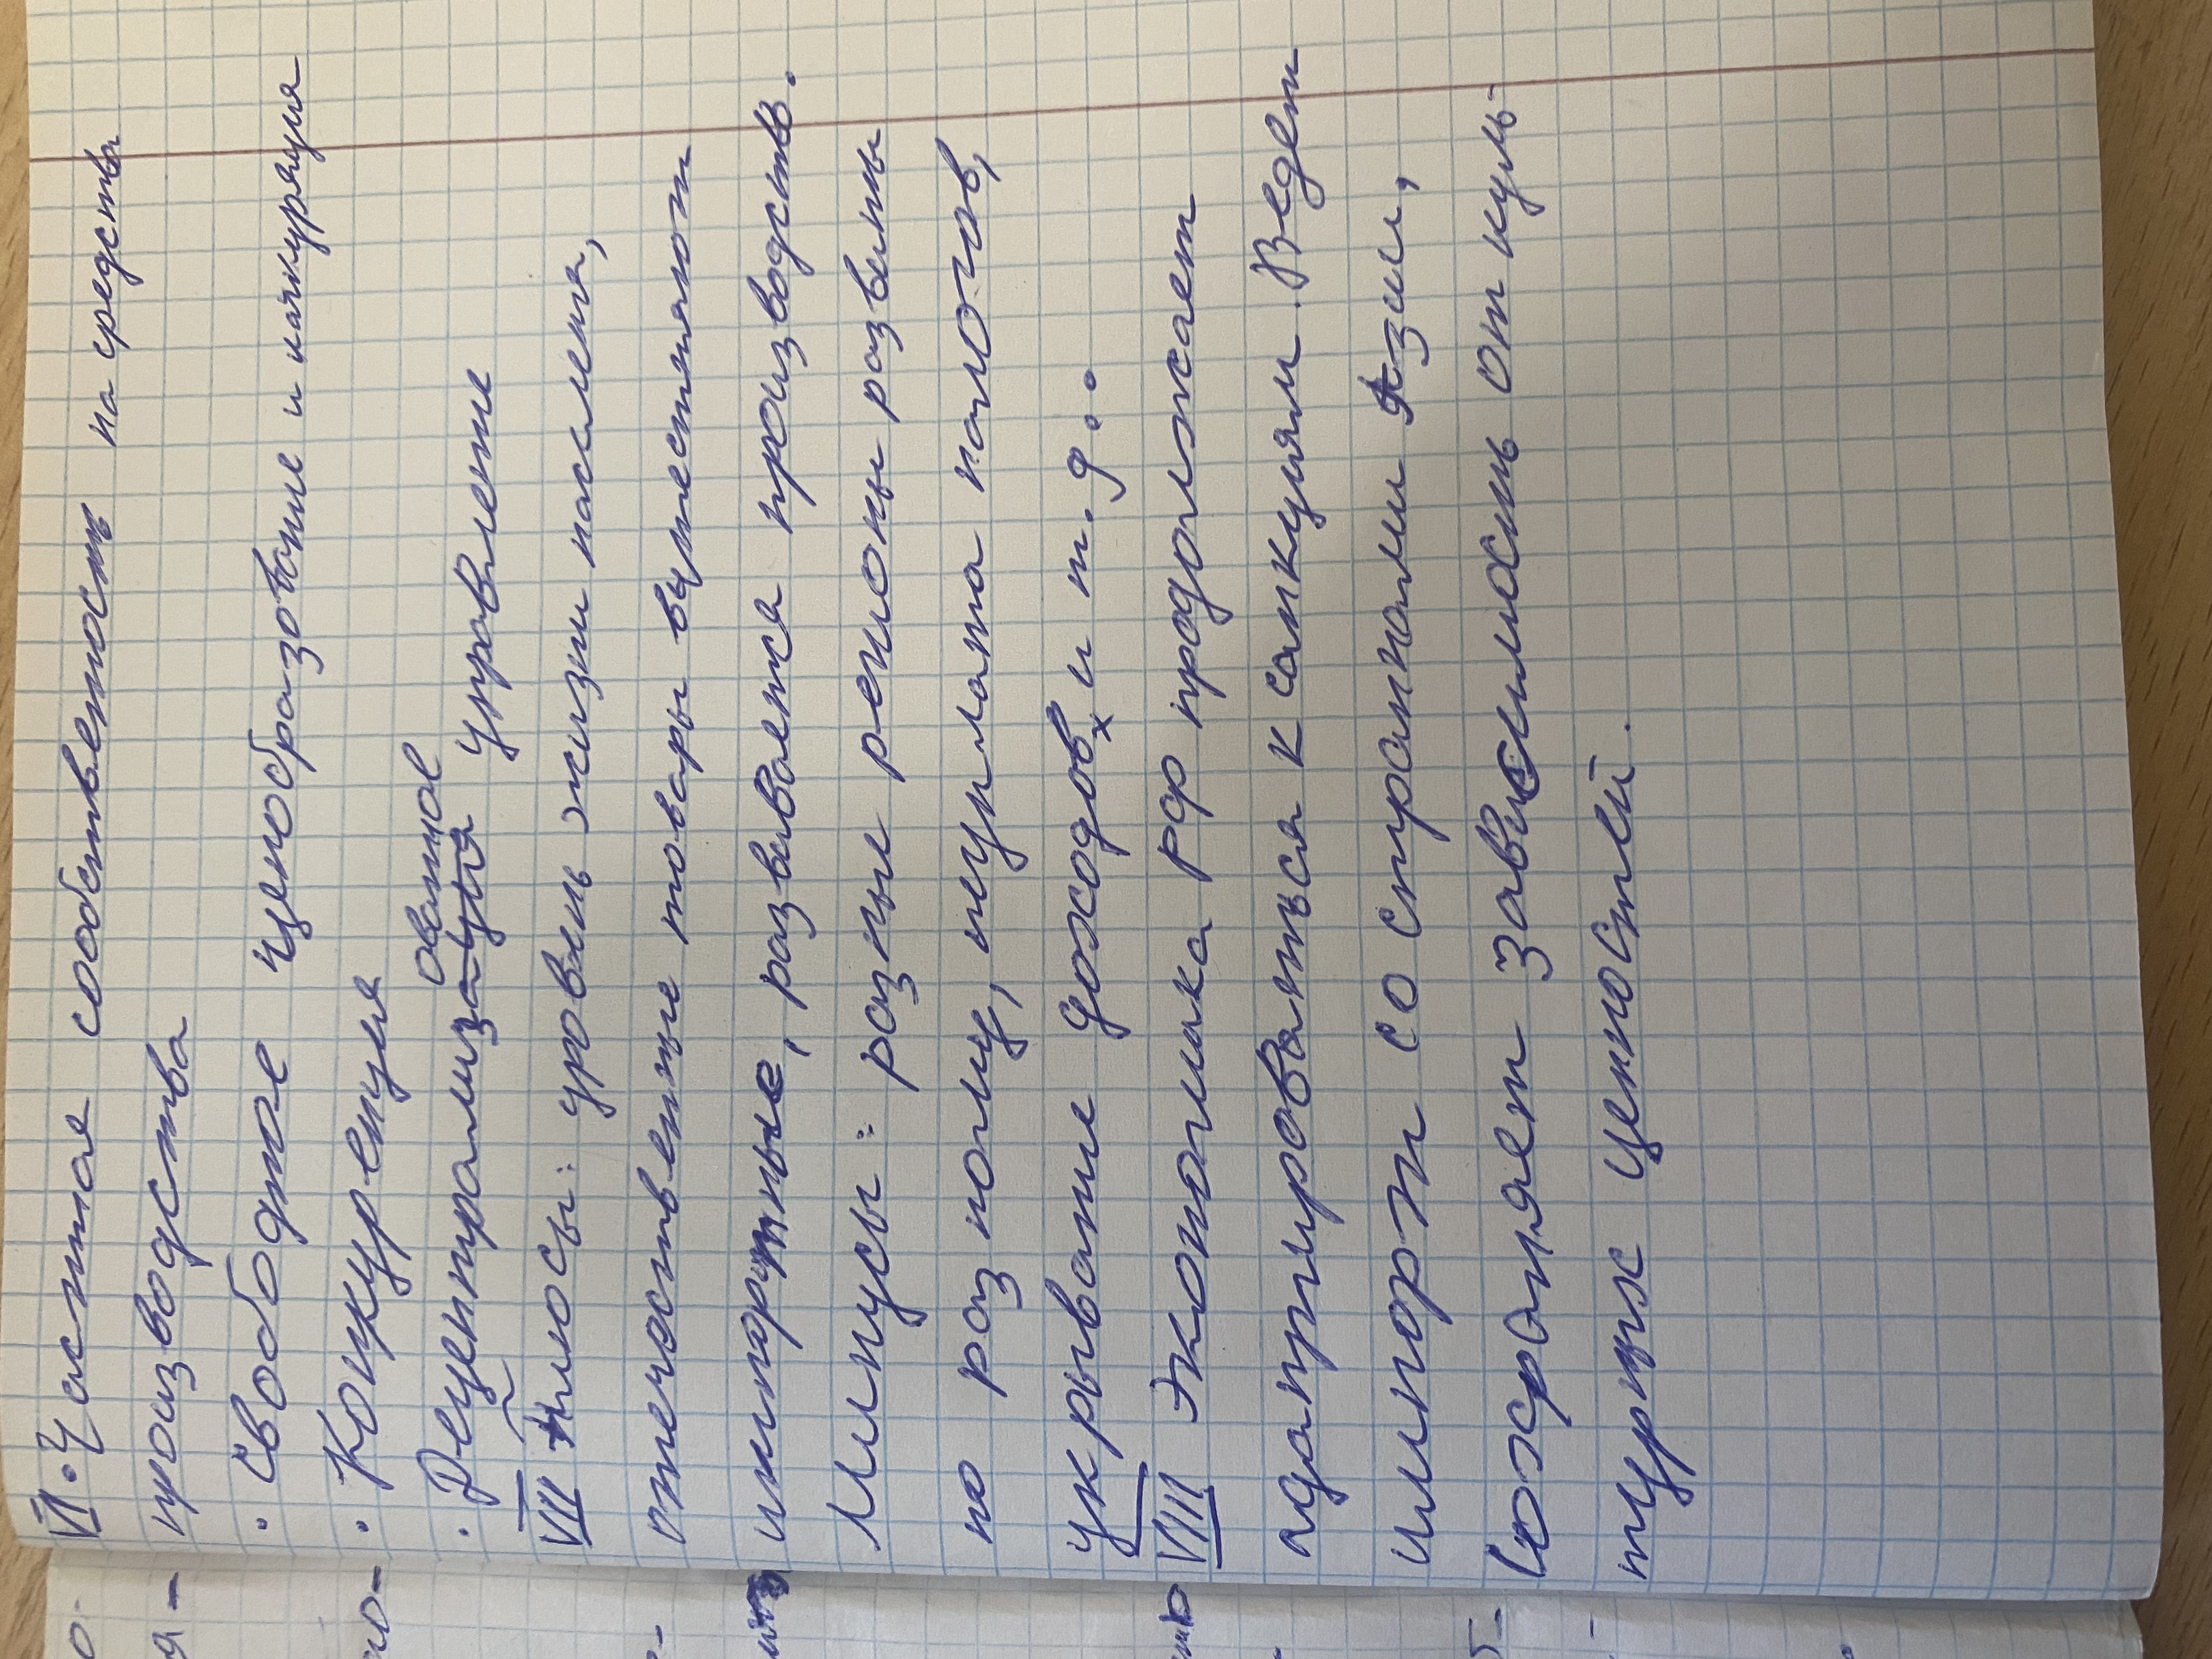 VI. • Частная сообственность на средства
производства
• Свободное ценообразование и канкуряция
• Конкуренция
• Децентрализованное управление
VII Плюсы: уровень жизни населения,
отечественные товары вытесняют
импортные, развивается производств.
Минусы: разные регионы развиты
по разному, неуплата налогов,
укрывание доходов и т.д..
VIII Экономика РФ продолжает
адаптироваться к санкциям. Ведет
импорт со странами Азии,
Сохраняет зависимость от куль-
турных ценностей.